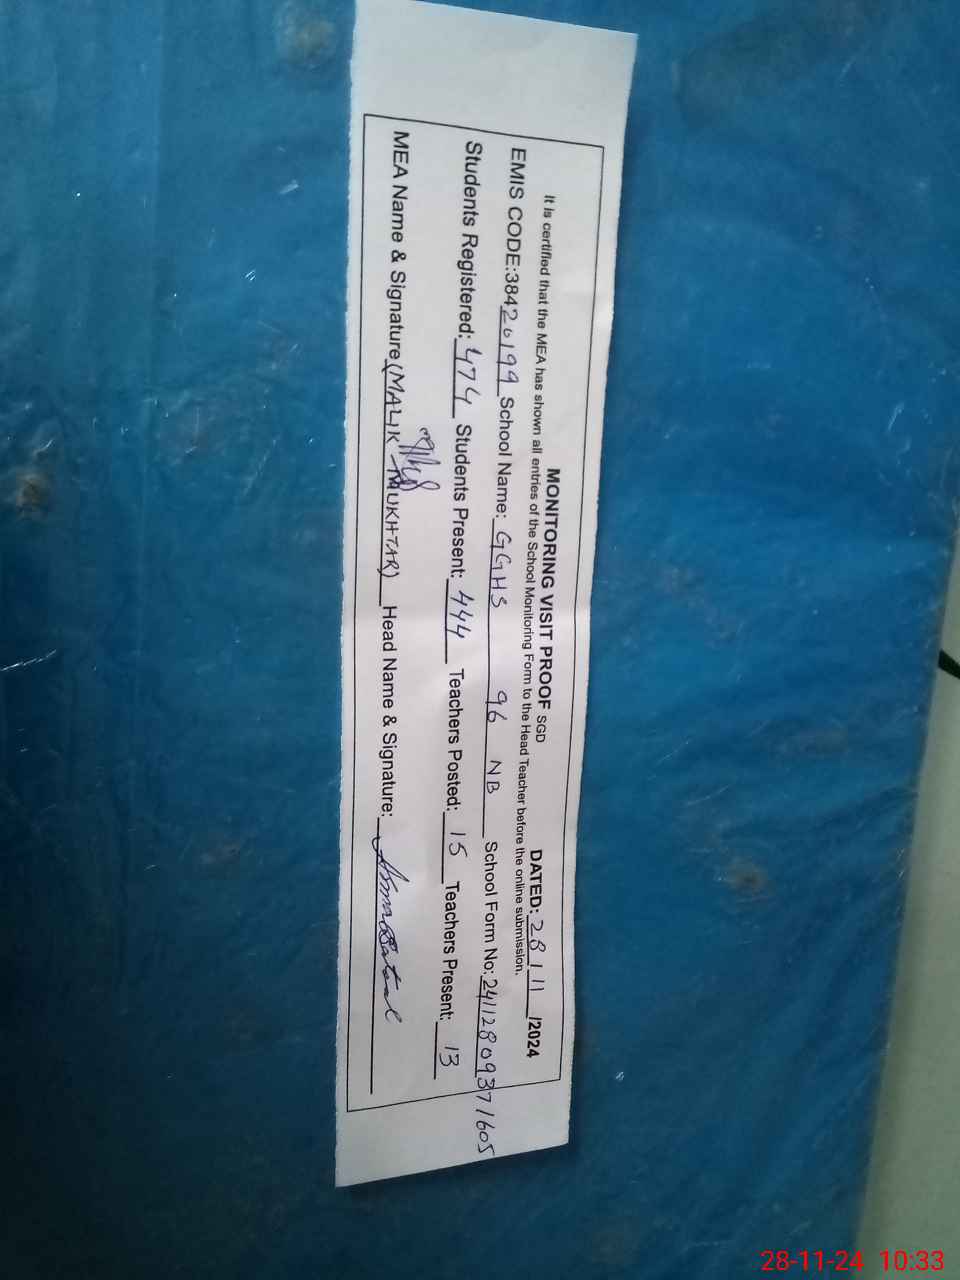 MONITORING VISIT PROOF SGD DATED: 28/11/2024
It is certified that the MEA has shown all entries of the School Monitoring Form to the Head Teacher before the online submission.
EMIS CODE:38420199 School Name: GGHS 96 NB School Form No: 24112809371605
Students Registered: 474 Students Present: 444 Teachers Posted: 15 Teachers Present: 13
MEA Name & Signature (MALIK MUKHTAR) Head Name & Signature: Asma Batool
28-11-24 10:33